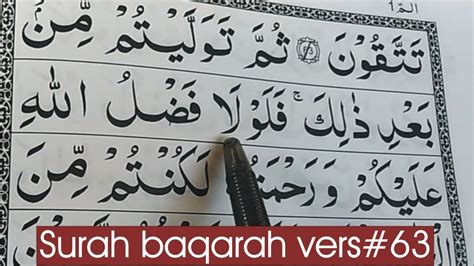 الٓمّٓ ١
تَتَّقُوْنَ ۝٦٣ ثُمَّ تَوَلَّيْتُمْ مِّنْۢ
بَعْدِ ذٰلِكَ ۚ فَلَوْلَا فَضْلُ اللّٰهِ
عَلَيْكُمْ وَرَحْمَتُهٗ لَكُنْتُمْ مِّنَ
Surah baqarah vers#63